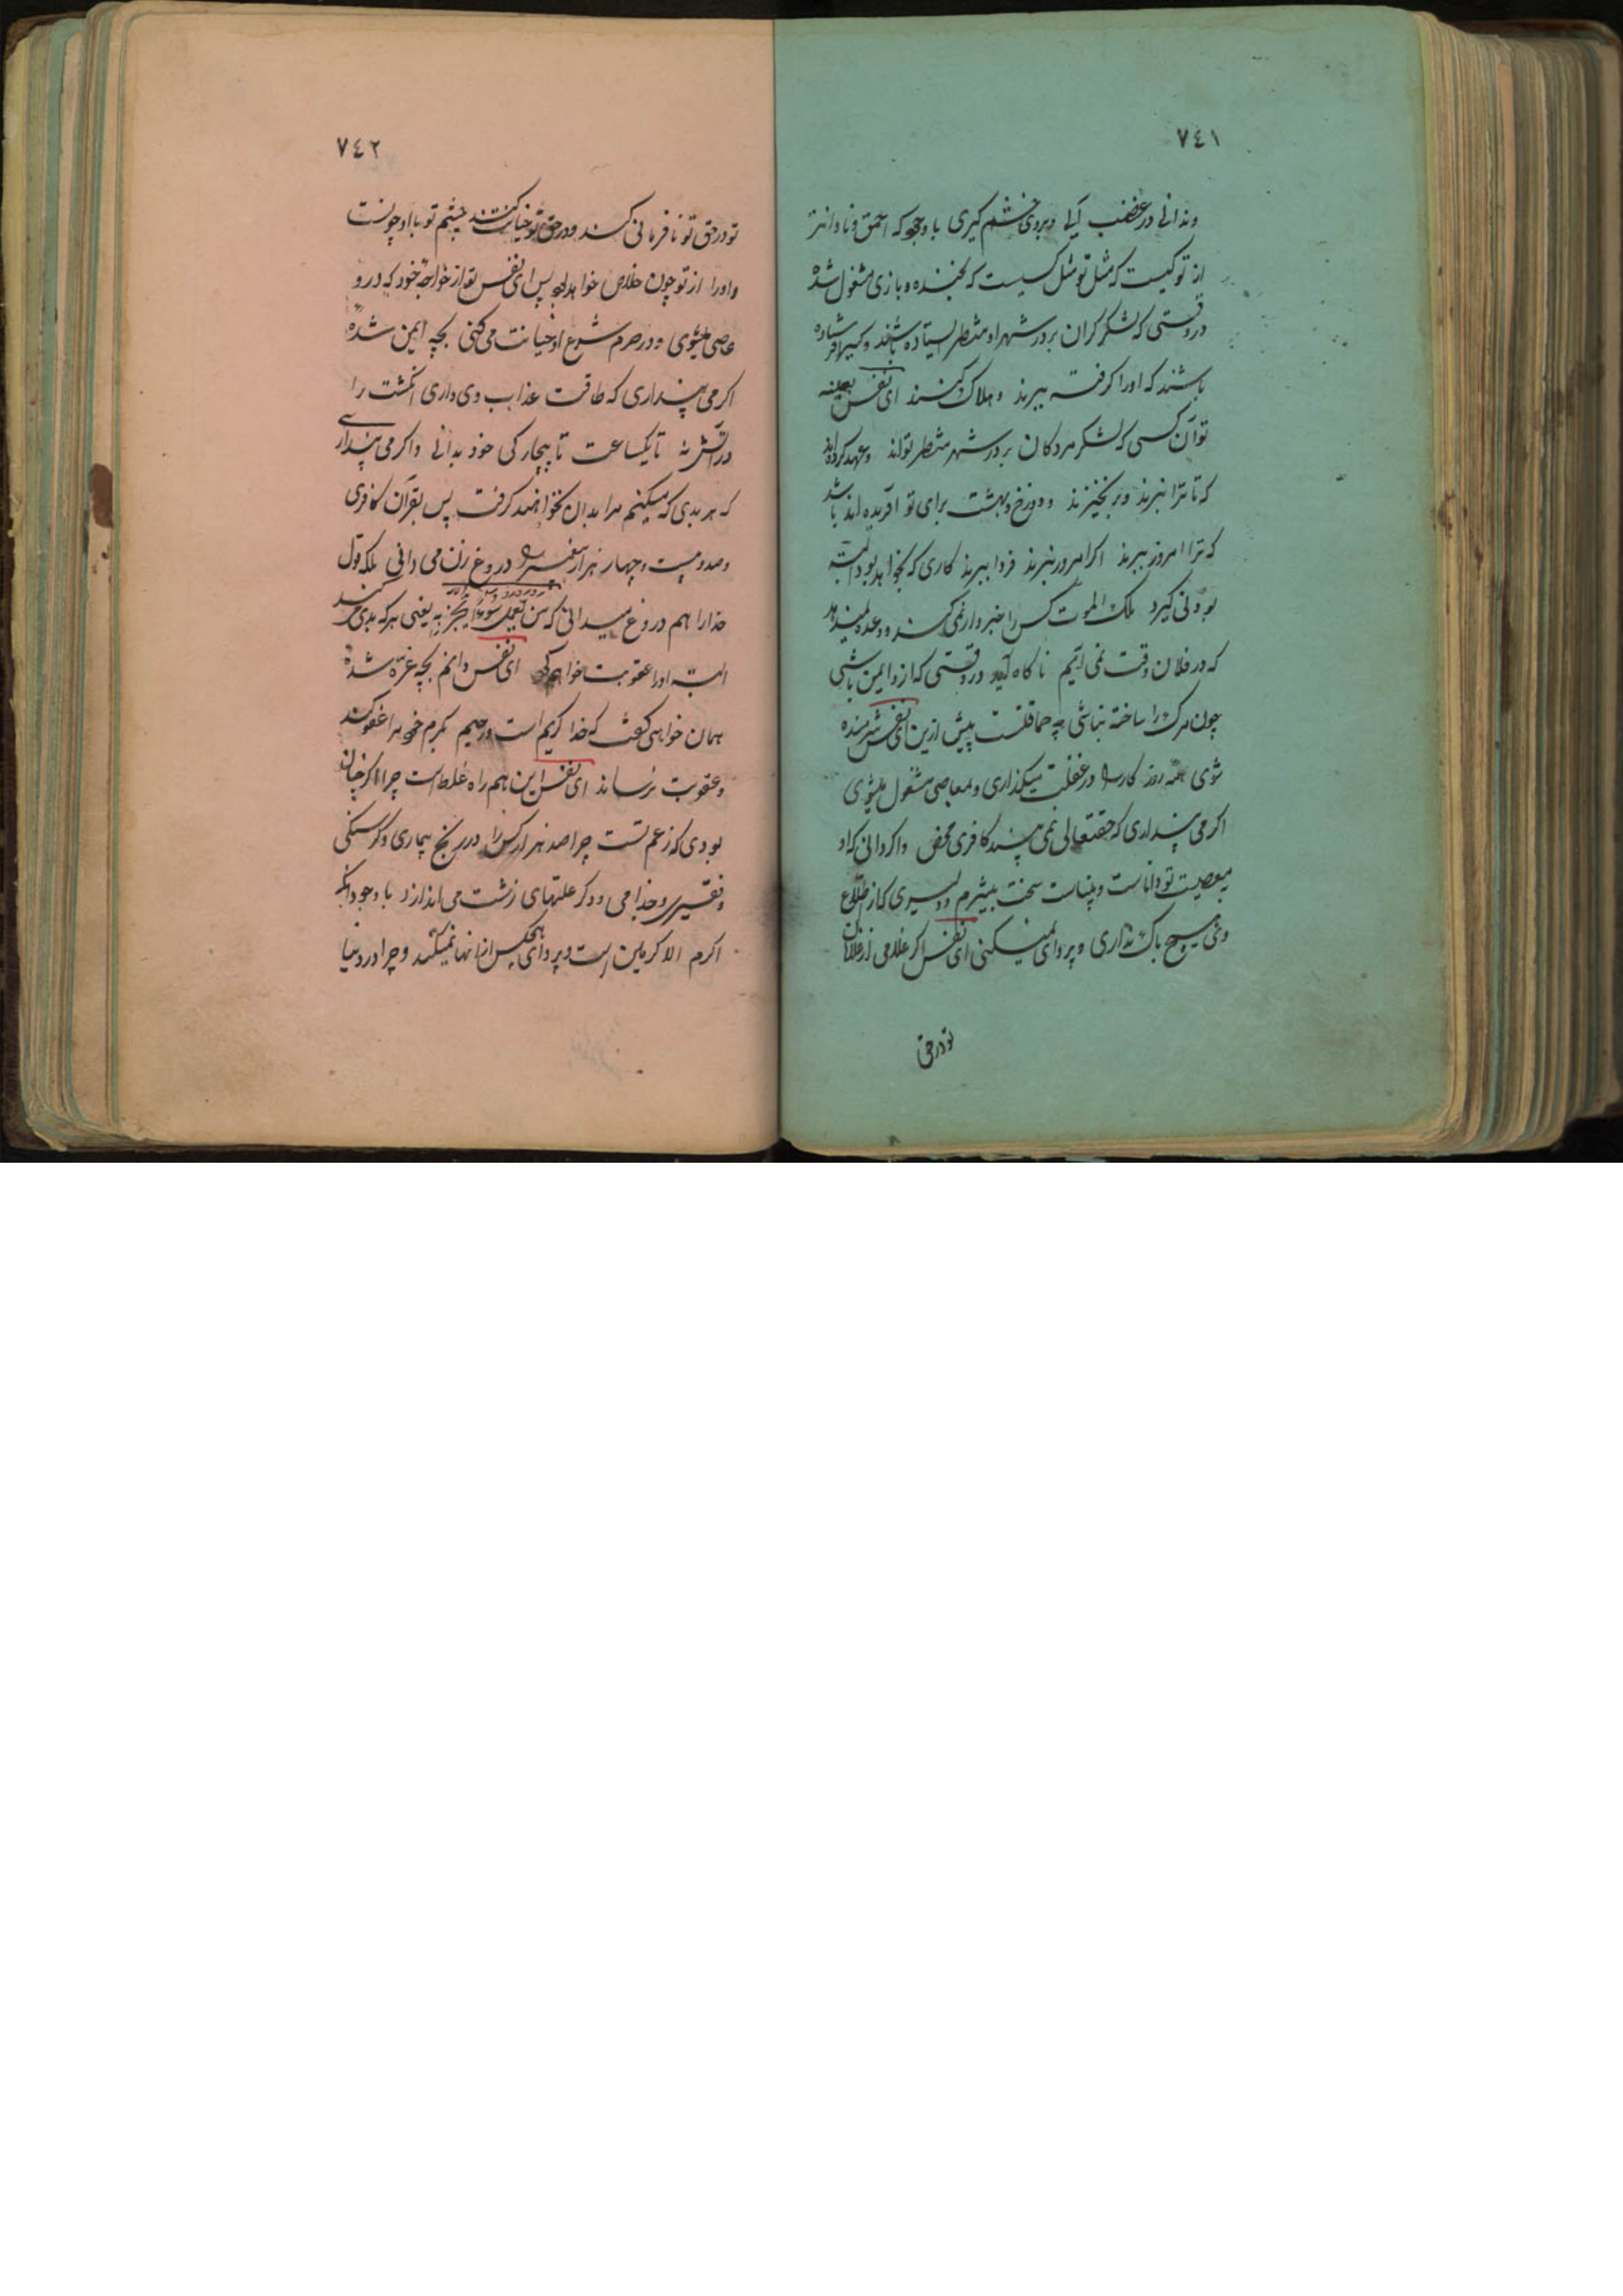 ٧٤١
ونه دانی در غضب آیی و بروی خشم گیری با وجود که احمق و نادانتر
از تو کیست که مثل تو مثل کسیست که بخنده و بازی مشغول شده
در وقتی که لشکر کران بر در شهر او منتظر ایستاده باشند و کسی فرستاده
باشند که او را گرفته ببرند و هلاک کنند ای نفس بعینه
تو آن کسی که لشکر مردگان بر در شهر منتظر تواند و عهد کرده اند
که تا ترا نبرند و بر نخیزند و دوزخ و بهشت برای تو آفریده اند باشد
که ترا امروز ببرند اگر امروز نبرند فردا ببرند کاری که بخواهد بود البته
بودنی گیرد ملک الموت کس را خبردار نمی کند و وعده نمیدهد
که در فلان وقت نمی آئیم ناکاه آید در وقتی که ازو ایمن باشی
چون مرگ را ساخته نباشی چه حماقتست پیش ازین ای نفس شرمنده
شوی همه روز کار را در غفلت میگذاری و بمعاصی مشغول میشوی
اگر می پنداری که حقتعالی نمی بیند کافری محض و اگر دانی که او
بمعصیت تو داناست و بیناست سخت بیشرم و دلیری که از اطلاع
وی هیچ باک نداری و پروای نمیکنی ای نفس اگر غلامی از غلامان
تو در حق
٧٤٢
تو در حق تو نافرمانی کند و در حق تو خیانت کند خشم تو با او چونست
و او را از تو چون خلاص خواهد بود پس ای نفس تو از خواجه خود که درو
عاصی میشوی و در حرم شرع او خیانت می کنی بچه ایمن شده
اگر می پنداری که طاقت عذاب وی داری انگشت را
در آتش نه تا یکساعت تا بیچارگی خود بدانی و اگر می پنداری
که هر بدی که میکنیم مرا بدان نخواهند گرفت پس بقرآن کافری
و صد و بیست و چهار هزار پیغمبر را دروغ زن می دانی بلکه قول
خدا را هم دروغ میدانی که من یعمل سوءا یجز به یعنی هر که بدی کند
البته او را عقوبت خواهم کرد ای نفس دانم بچه غره شده
همان خواهی گفت که خدا کریم است و رحیم بکرم خود مرا عفو کند
و عقوبت نرساند ای نفس این هم راه غلط است چرا اگر چنان
بودی که زعم تست چرا صد هزار کس را در رنج بیماری و گرسنگی
و فقیری و جذامی و دگر علتهای زشت می اندازد با وجود آنکه
اکرم الاکرمین است و پروای هیچکس از آنها نمیکند و چرا در دنیا